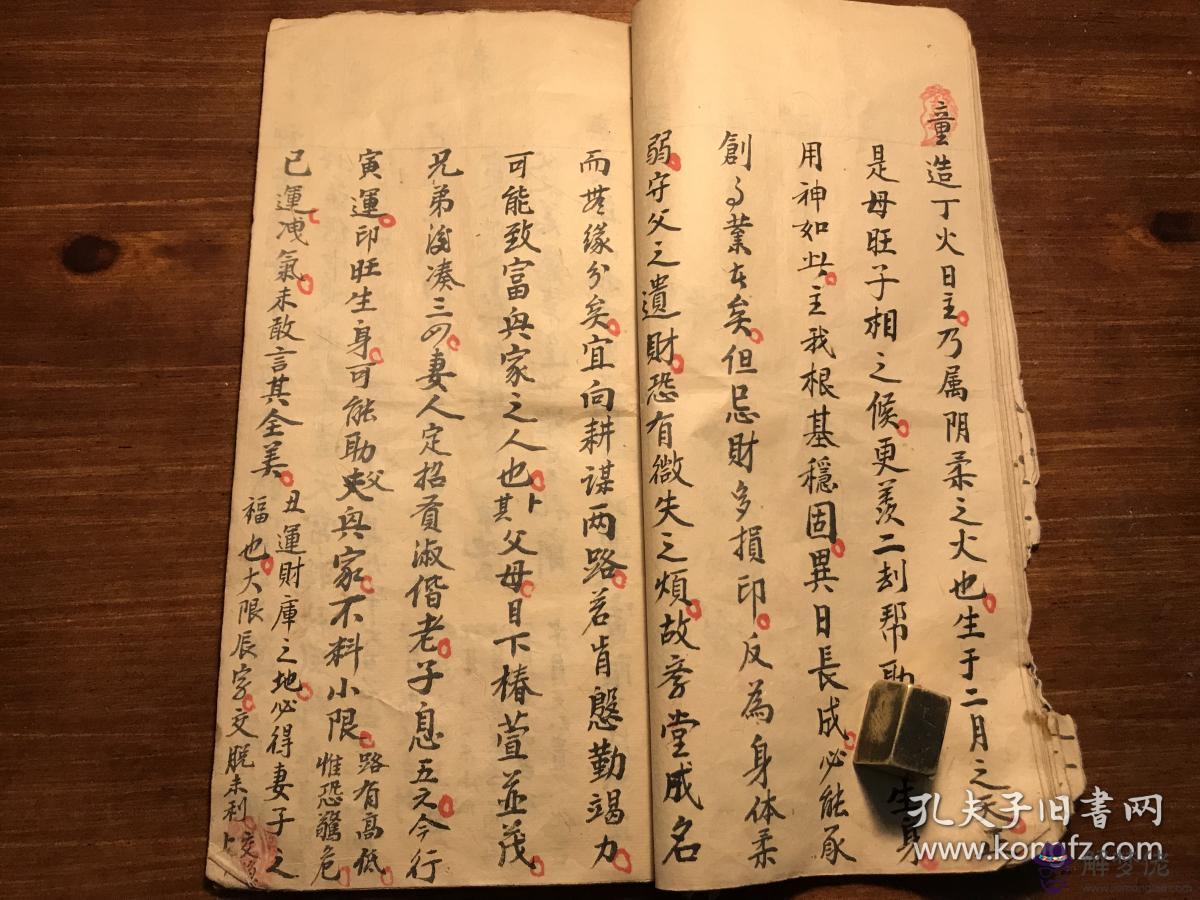 童造丁火日主乃属阴柔之火也生于二月之天
是母旺子相之候更羡二刦帮助生身
用神如此主我根基穩固異日長成必能承
創了業在矣但忌財多損印反為身体柔
弱守父之遺財恐有微失之煩故牵堂成名
而無缘分矣宜向耕谋两路若肯慇勤竭力
可能致富與家之人也卜其父母目下椿萱並茂
兄弟湊三四妻人定招賢淑偕老子息五元今行
寅運印旺生身可能助父與家不料小限路有高低惟恐驚危
已運洩氣未敢言其全美丑運財庫之地必得妻子之福也大限辰字交脱未利卜
孔夫子旧书网
www.kongfz.com
解梦佬
www.jiemenglao.com